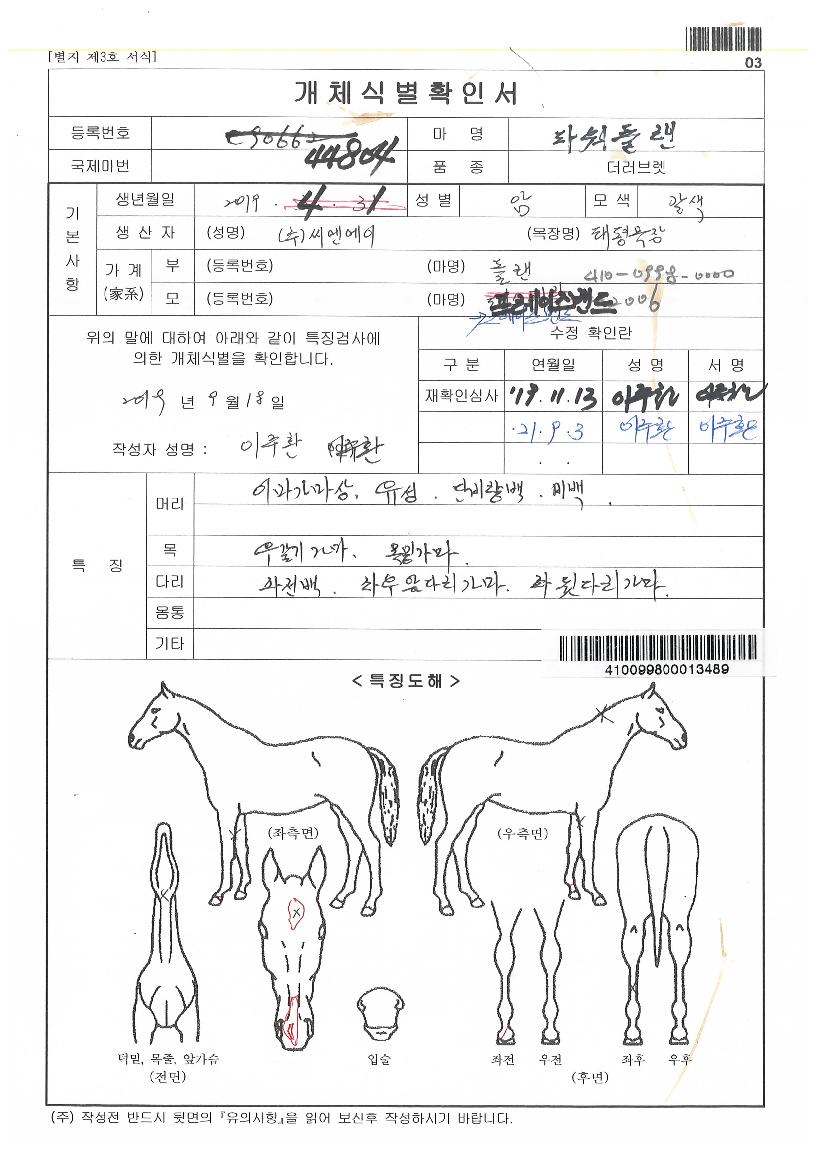 [별지 제3호 서식]
03
개체식별확인서
등록번호
44804
마 명 파워플랜
국제마번
품 종 더러브렛
기본사항
생년월일 2019 . 4 . 31 성별 암 모색 갈색
생 산 자 (성명) (주)씨엔에이 (목장명) 태평목장
가 계 (家系)
부 (등록번호) (마명) 플랜 410-0998-0000
모 (등록번호) (마명) 2006
위의 말에 대하여 아래와 같이 특징검사에
의한 개체식별을 확인합니다.
2019 년 9 월 18 일
작성자 성명 : 이주환 이주환
수정 확인란
구 분 연월일 성 명 서 명
재확인심사 '19.11.13 이주환 이주환
.21.9.3 이주환 이주환
. .
특 징
머리 이마가마상, 유성 . 단비량백 . 비백 .
목 우갈기가마, 목밑가마.
다리 좌전백 . 좌우앞다리가마. 좌뒷다리가마.
몸통
기타
410099800013489
< 특징도해 >
(좌측면) (우측면)
턱밑, 목줄, 앞가슴
(전면)
입술
좌전 우전 좌후 우후
(후면)
(주) 작성전 반드시 뒷면의 『유의사항』을 읽어 보신후 작성하시기 바랍니다.